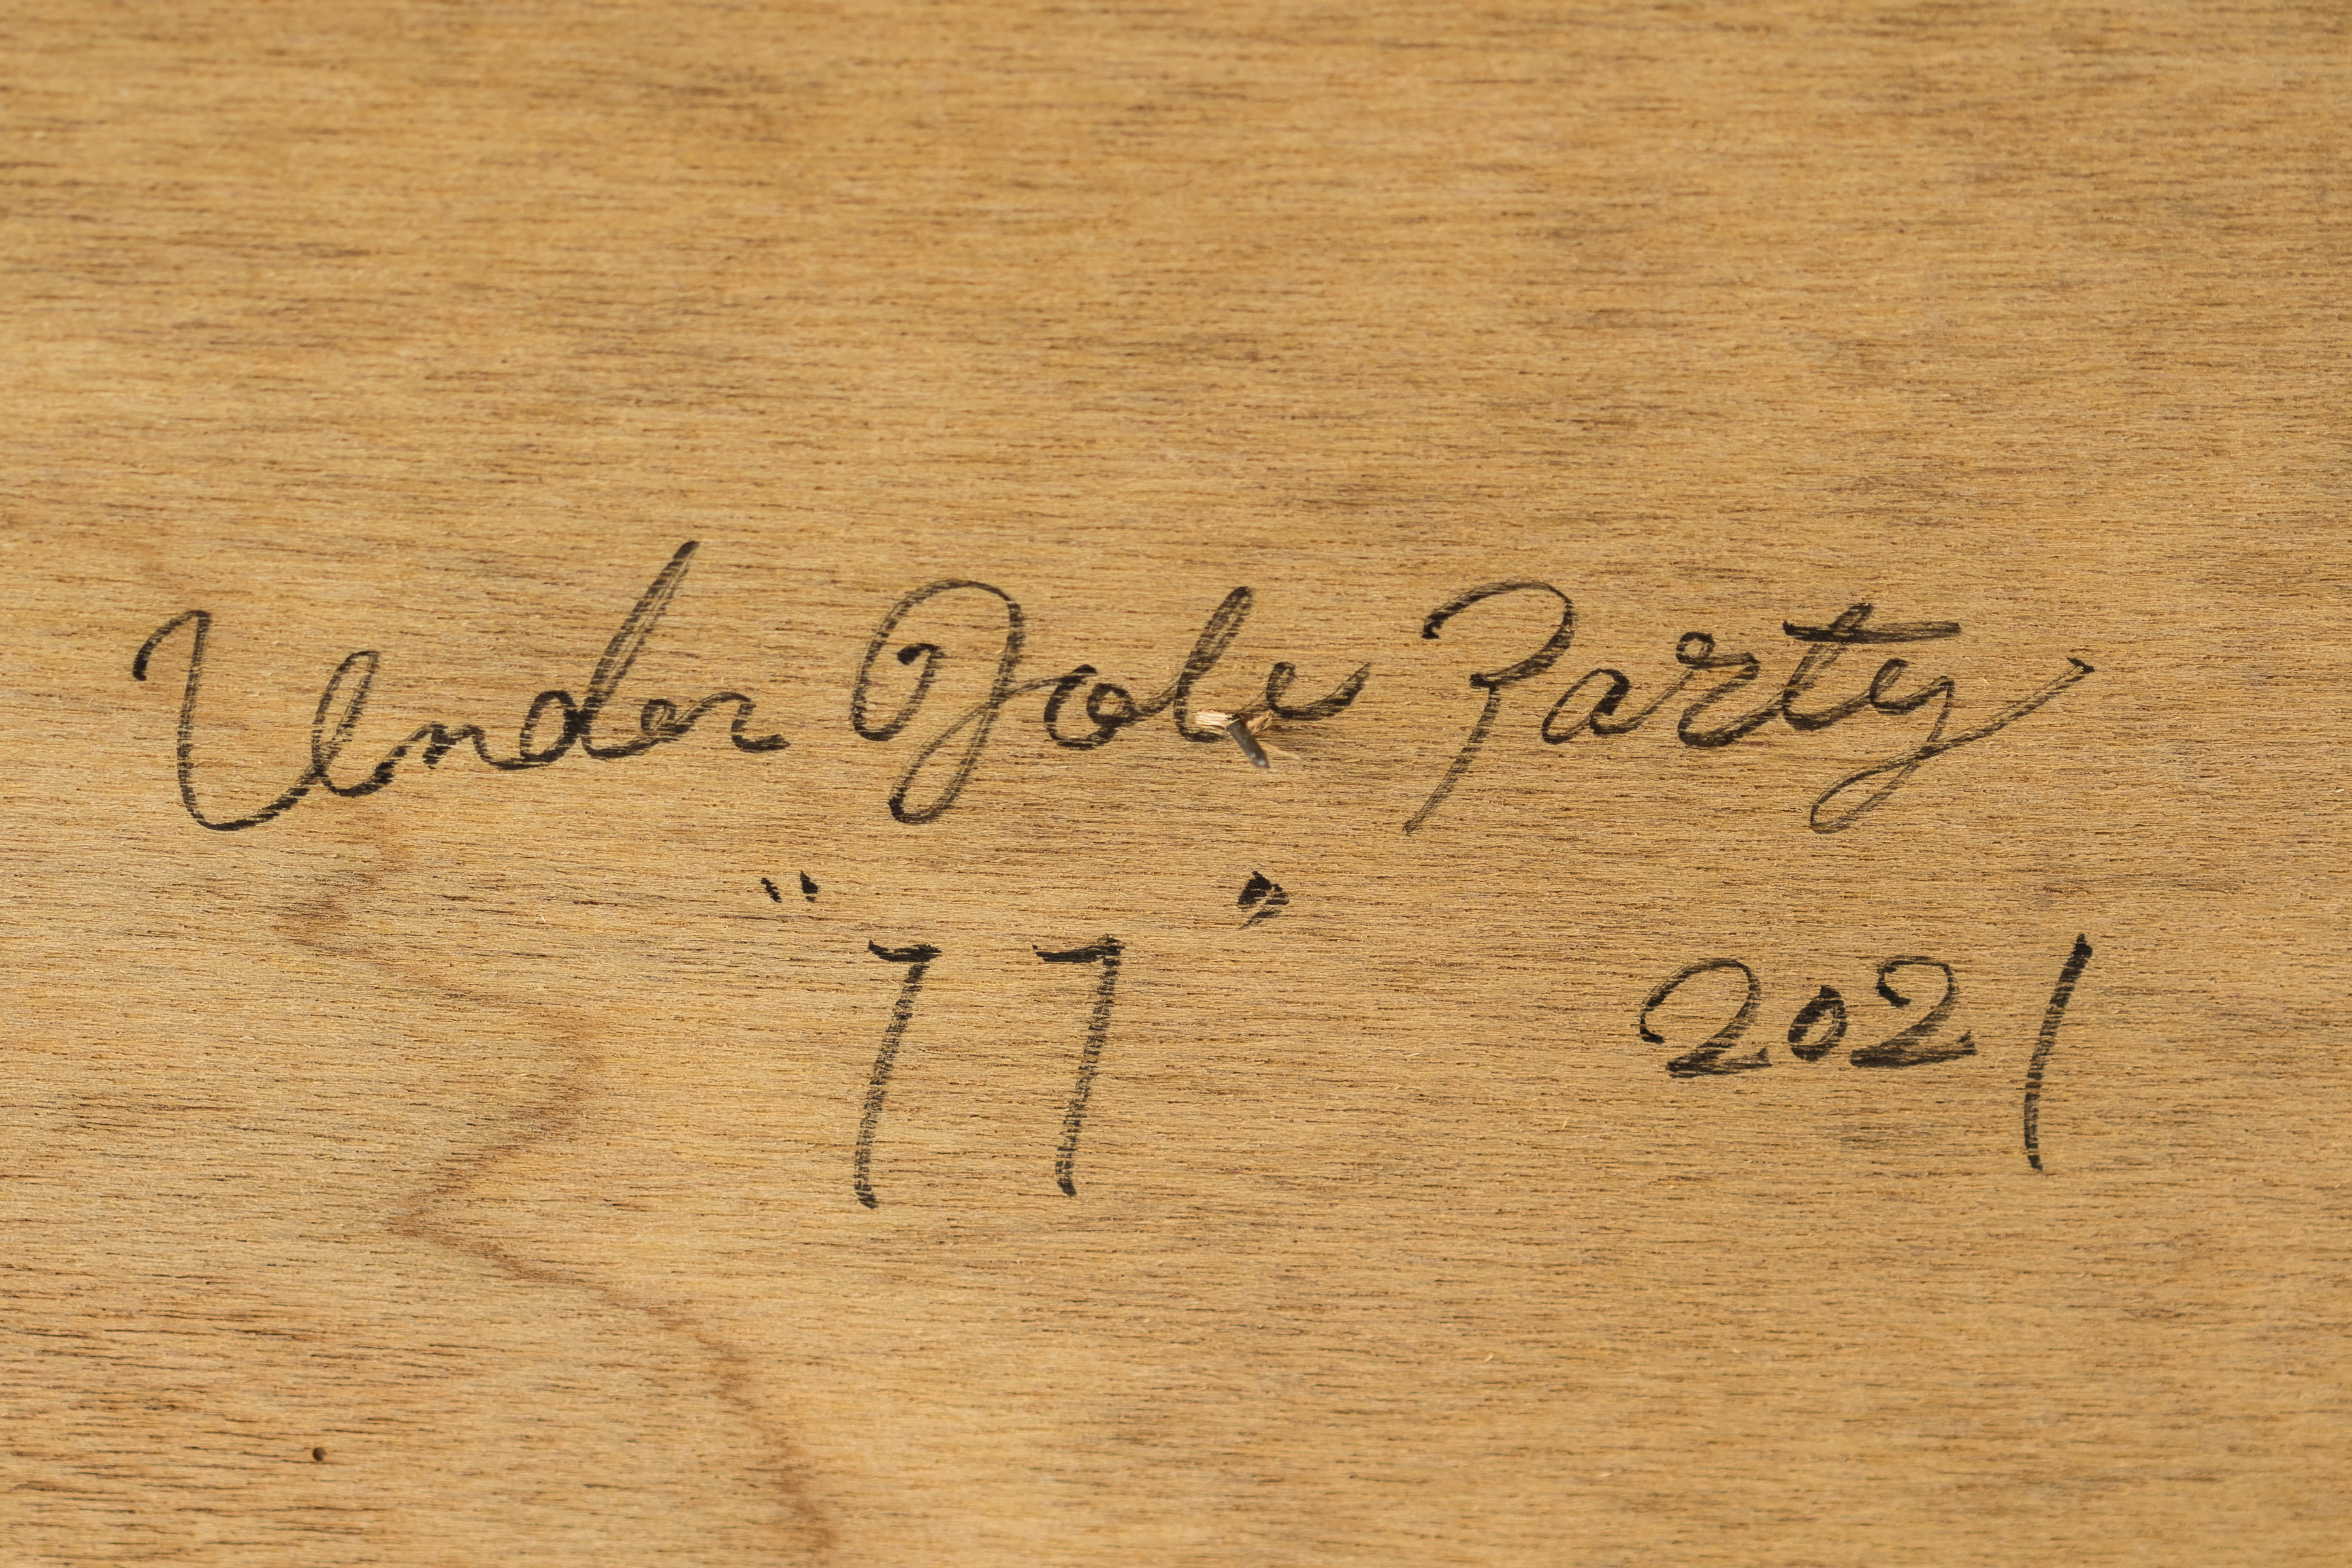 Under Party
"77" 2021